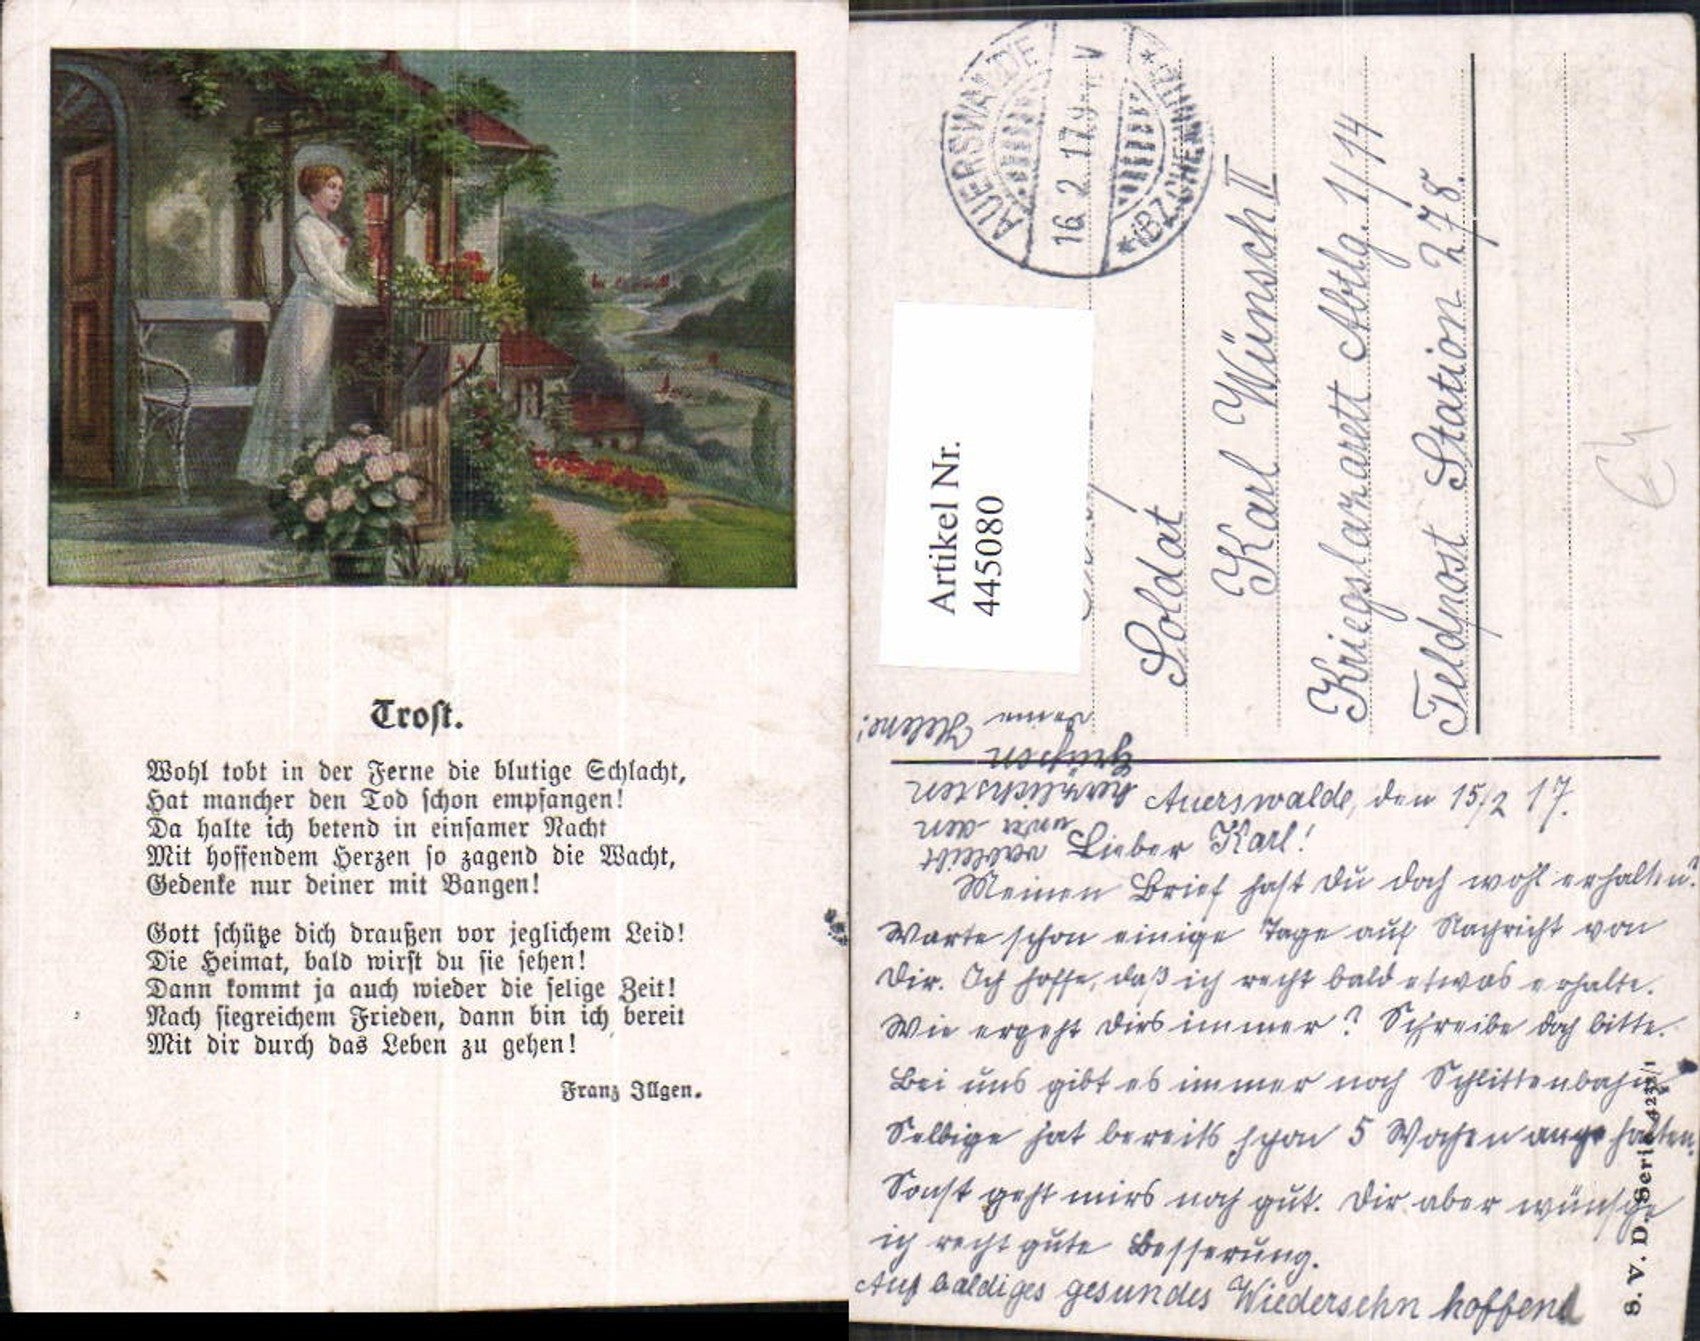 Trost.
Wohl tobt in der Ferne die blutige Schlacht,
Hat mancher den Tod schon empfangen!
Da halte ich betend in einsamer Nacht
Mit hoffendem Herzen so zagend die Wacht,
Gedenke nur deiner mit Bangen!
Gott schütze dich draußen vor jeglichem Leid!
Die Heimat, bald wirst du sie sehen!
Dann kommt ja auch wieder die selige Zeit!
Nach siegreichem Frieden, dann bin ich bereit
Mit dir durch das Leben zu gehen!
Franz Illgen.
AUERSWALDE
16 2 17 9-V
*(BZ. CHEMNITZ)*
Artikel Nr.
445080
Soldat
Karl Wünsch II
Kriegslazarett Abtlg. 1/14
Feldpost Station 278.
Auerswalde, den 15/2 17.
Lieber Karl!
Meinen Brief hast Du doch wohl erhalten?
Warte schon einige Tage auf Nachricht von
Dir. Ich hoffe, daß ich recht bald etwas erhalte.
Wie ergeht Dirs immer? Schreibe doch bitte.
Bei uns gibt es immer noch Schlittenbahn.
Selbige hat bereits schon 5 Wochen angehalten.
Sonst geht mirs noch gut. Dir aber wünsche
ich recht gute Besserung.
Auf baldiges gesundes Wiedersehn hoffend
verbleibt
mit den
herzlichsten
Grüßen
Deine Helene!
S. V. D. Serie 423/1